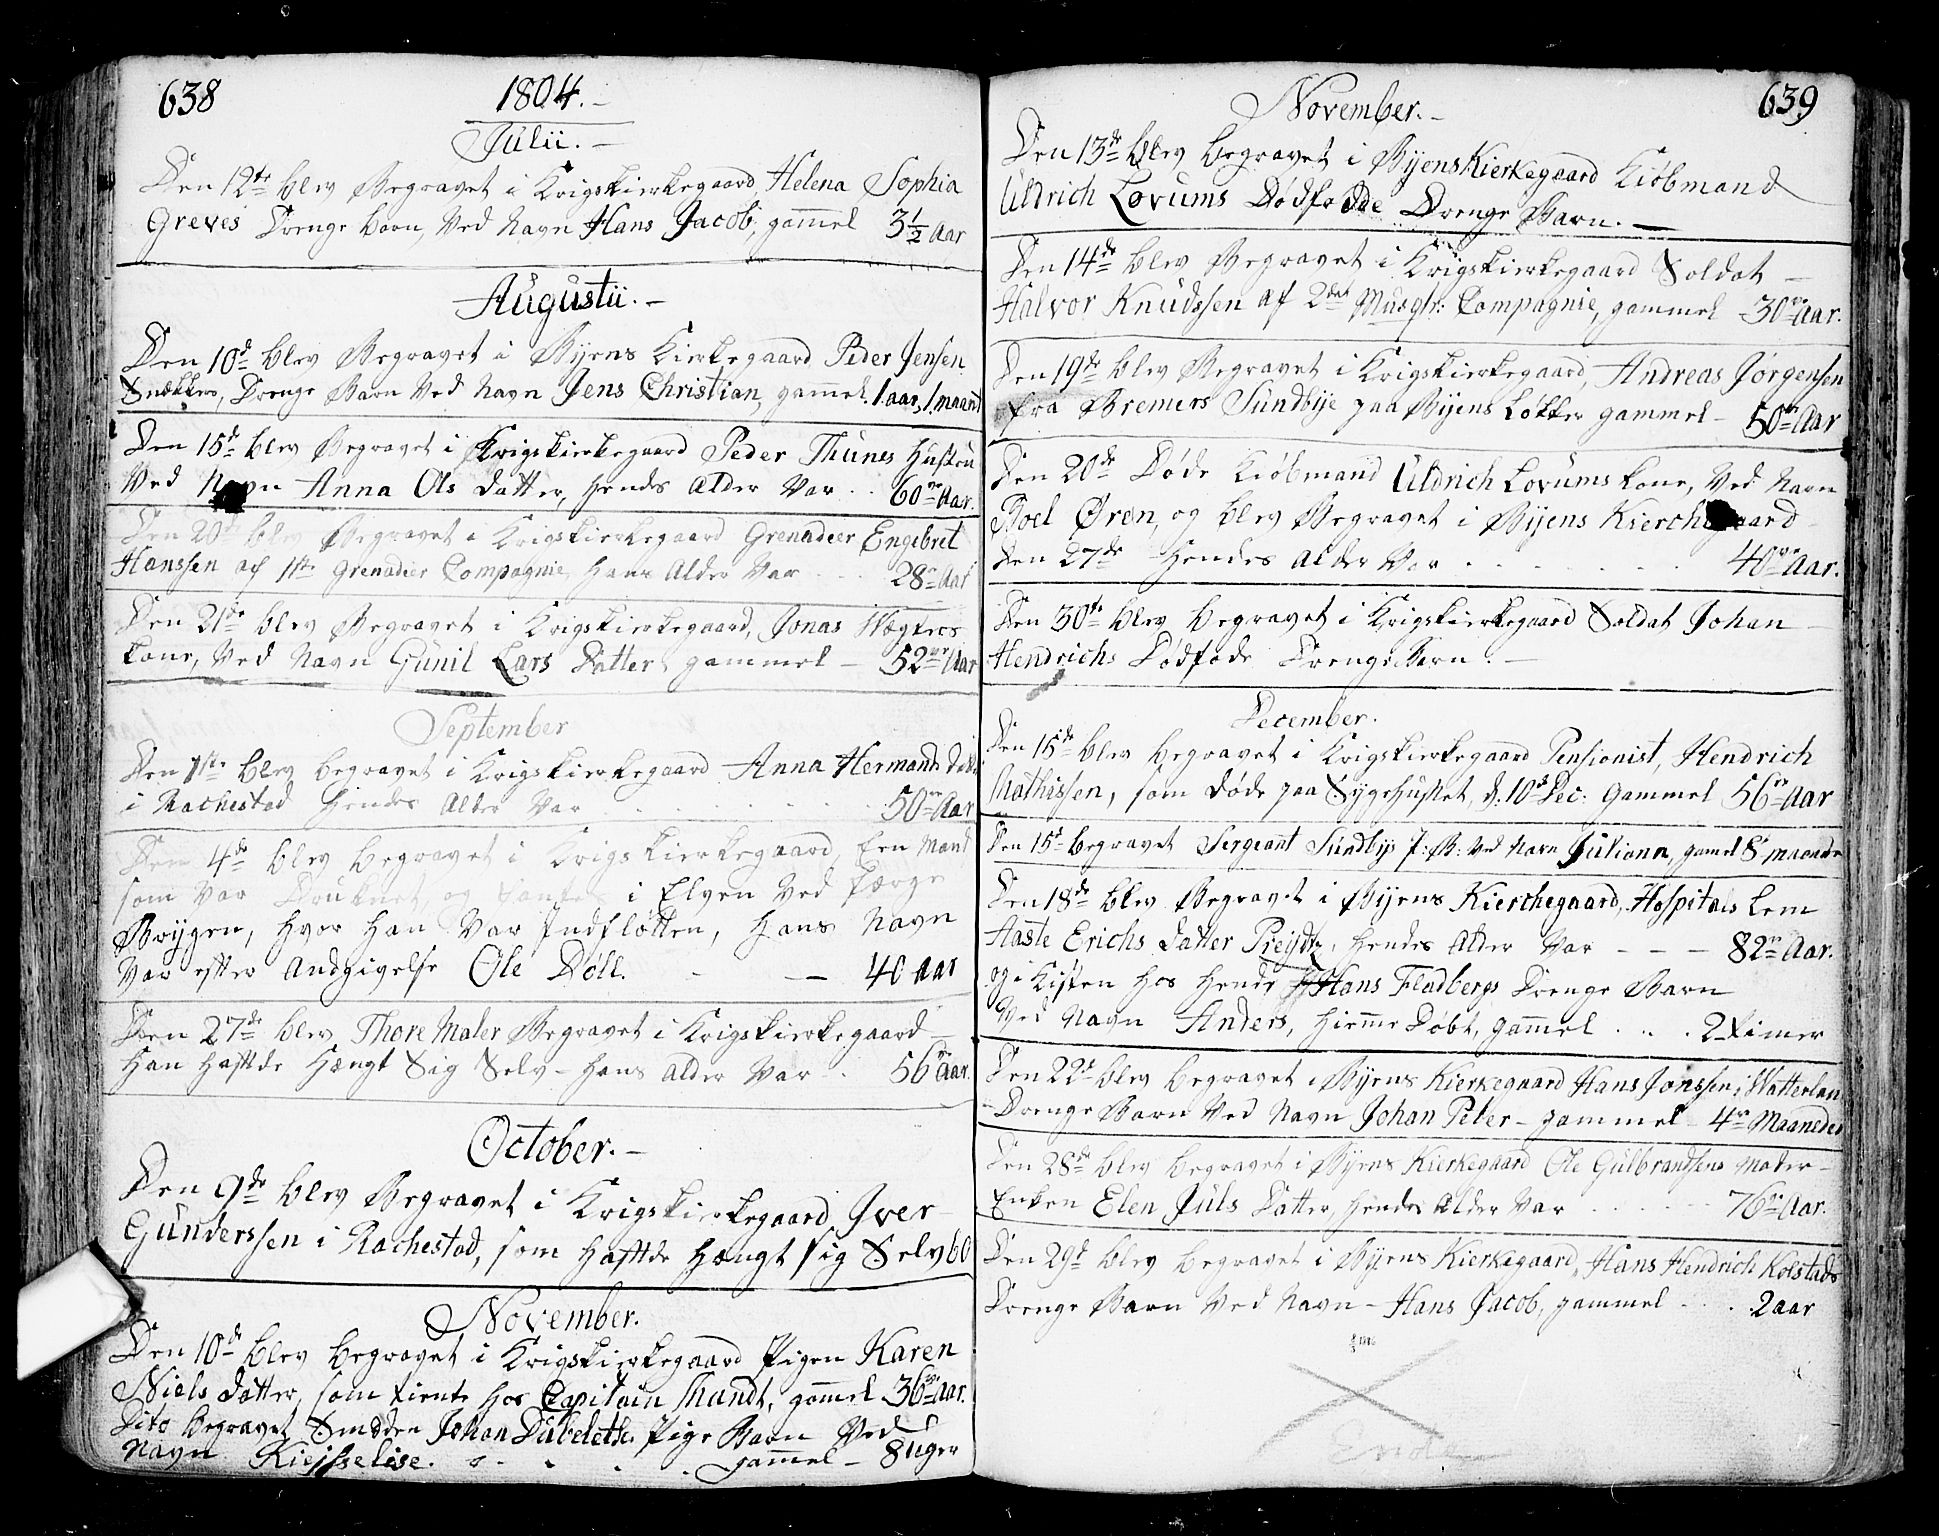 638
1804.
Julii.
Den 12te blev Begravet i Krigskierkegaard, Helena Sophia
Greves Drenge barn, Ved Navn Hans Jacob, gammel 3½ Aar
Augustii.
Den 10d blev Begravet i Byens Kierkegaard Peder Jensen
Snækkers, Drenge Barn Ved Navn Jens Christian, gamel. 1 aar, 1 maand
Den 15d blev Begravet i Krigskierkegaard Peder Thunes Hustru
Ved Navn Anna Ols Datter, hendes Alder Var .. 60 Aar.
Den 20de blev Begravet i Krigskierkegaard Grenadeer Engebret
Hanssen af 1ste Grenadeer Compagnie, hans Alder Var ... 28 Aar
Den 21de blev Begravet i Krigskierkegaard, Jonas Vægters
kone, Ved Navn Gunil Lars Datter gammel – 52 Aar
September
Den 1ste blev begravet i Krigskierkegaard Anna Hermands
i Rachestad hendes Alder Var 50 Aar
Den 4de blev begravet i Krigskierkegaard, Een Mand
som Var Druknet, og i Elven Ved færge
Brygen, hvor han Var Indfløtten, Hans Navn
Var efter Andgivelse Ole Döll. — 40 aar
Den 27de blev Thore Maler Begravet i Krigskierkegaard
han hafde Hængt Sig Selv – hans alder Var . 56 aar.
October.
Den 9de blev Begravet i Krigskierkegaard Iver
Gunderssen i Rachestad, som hafde hængt sig Selv 60
November.
Den 10de blev begravet i Krigskierkegaard Pigen Karen
Niels datter, som tiente hos Capitain Mundt, gamel 36 Aar.
Dito begravet Smeden Johan Dubeleths Pige Barn Ved
Navn Kiesselise. gammel – 8 uger
639
November.
Den 13de blev begravet i Byens Kierkegaard Kiöbmand
Uldrich Lovums Dødfødde Drenge Barn.
Den 14de blev Begravet i Krigskierkegaard Soldat
Halvor Knudssen af 2det Musqtr: Compagnie, gammel – 30 Aar.
Den 19de blev Begravet i Krigskierkegaard, Andreas Jørgensen
fra Bremers Sundbye paa Byens Løkker gammel – 50 Aar
Den 20de Døde Kiøbmand Uldrich Lovums kone, Ved Navn
Boel Øren, og blev Begravet i Byens Kierchegaard
den 27de Hendes Alder Var ...... 40 Aar.
Den 30te blev begravet i Krigskierkegaard Soldat Johan
Hendrichs Dødføde Drenge Barn. –
December.
Den 15de blev begravet i Krigskierkegaard Pensionist, Hendrich
Mathissen, som døde paa Sygehuset, d. 10d Dec: gammel 56 Aar
Den 15d begravet Sergeant Sundbys P: B: Ved Navn Juliana, gamel 8 maander
Den 18de blev Begravet i Byens Kierchegaard, Hospitals Lem
Aaste Erichs datter Preydtz, hendes Alder Var – – – 82 Aar.
og i Kisten hos hende Hans Fladbergs Drenge Barn
Ved Navn Anders, hiemme Døbt, gammel ... 2 timer
Den 22d blev begravet i Byens Kierkegaard Hans Jonssen i Vatterlan
Drenge Barn Ved Navn Johan Peter – gammel 4 Maaneder
Den 28de blev begravet i Byens Kierkegaard Ole Gulbrandsens Moder
Enken Elen Juls Datter, hendes Alder Var ...... 76 Aar.
Den 29d blev begravet i Byens Kierkegaard, Hans Hendrich Kolstads
Drenge Barn Ved Navn – Hans Jacob, gammel ... 2 aar